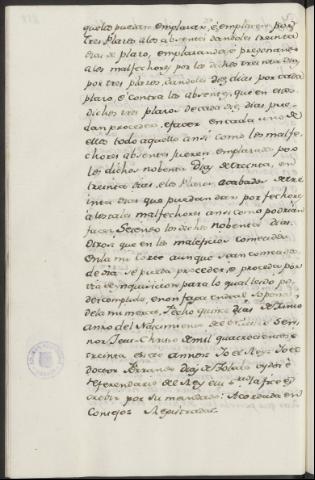 que los puedan emplazar, é emplacen por
tres plazos a los absentes dandoles treinta
dias de plazo, emplazando, é pregonando
a los malfechores por los dichos treinta dias,
por tres plazos, dandoles diez dias por cada
plazo, é contra los absentes, que en esos
dichos tres plazos de cada diez dias pue-
dan proceder, é facer en cada uno de
ellos todo aquello ansi como los malfe-
chores absentes fueren emplazados por
los dichos nobenta dias de treinta, en
treinta dias, e los plazos acabados de tre
inta dias que puedan dar por fechores
a los tales malfechores ansi como podrian
facer seiendo los dichos nobenta dias.
Otrosi que en los maleficios cometidos
en la mi Corte aunque sean cometidos
de dia se pueda proceder, é proceda por
via de inquisicion para lo qual les do po-
der complido, é non faga ende al so pena
de la mi merced, Fecho quince dias de Junio
año del Nacimiento de nuestro Señ
nor Jesu-Christo de mil quatrocientos é
treinta é años Yo el Rey: Yo el
doctor Fernando Diaz de Toledo oydor é
referendario del Rey é su la fice es
crebir por su mandado: Acordada en
Consejo Registrada.